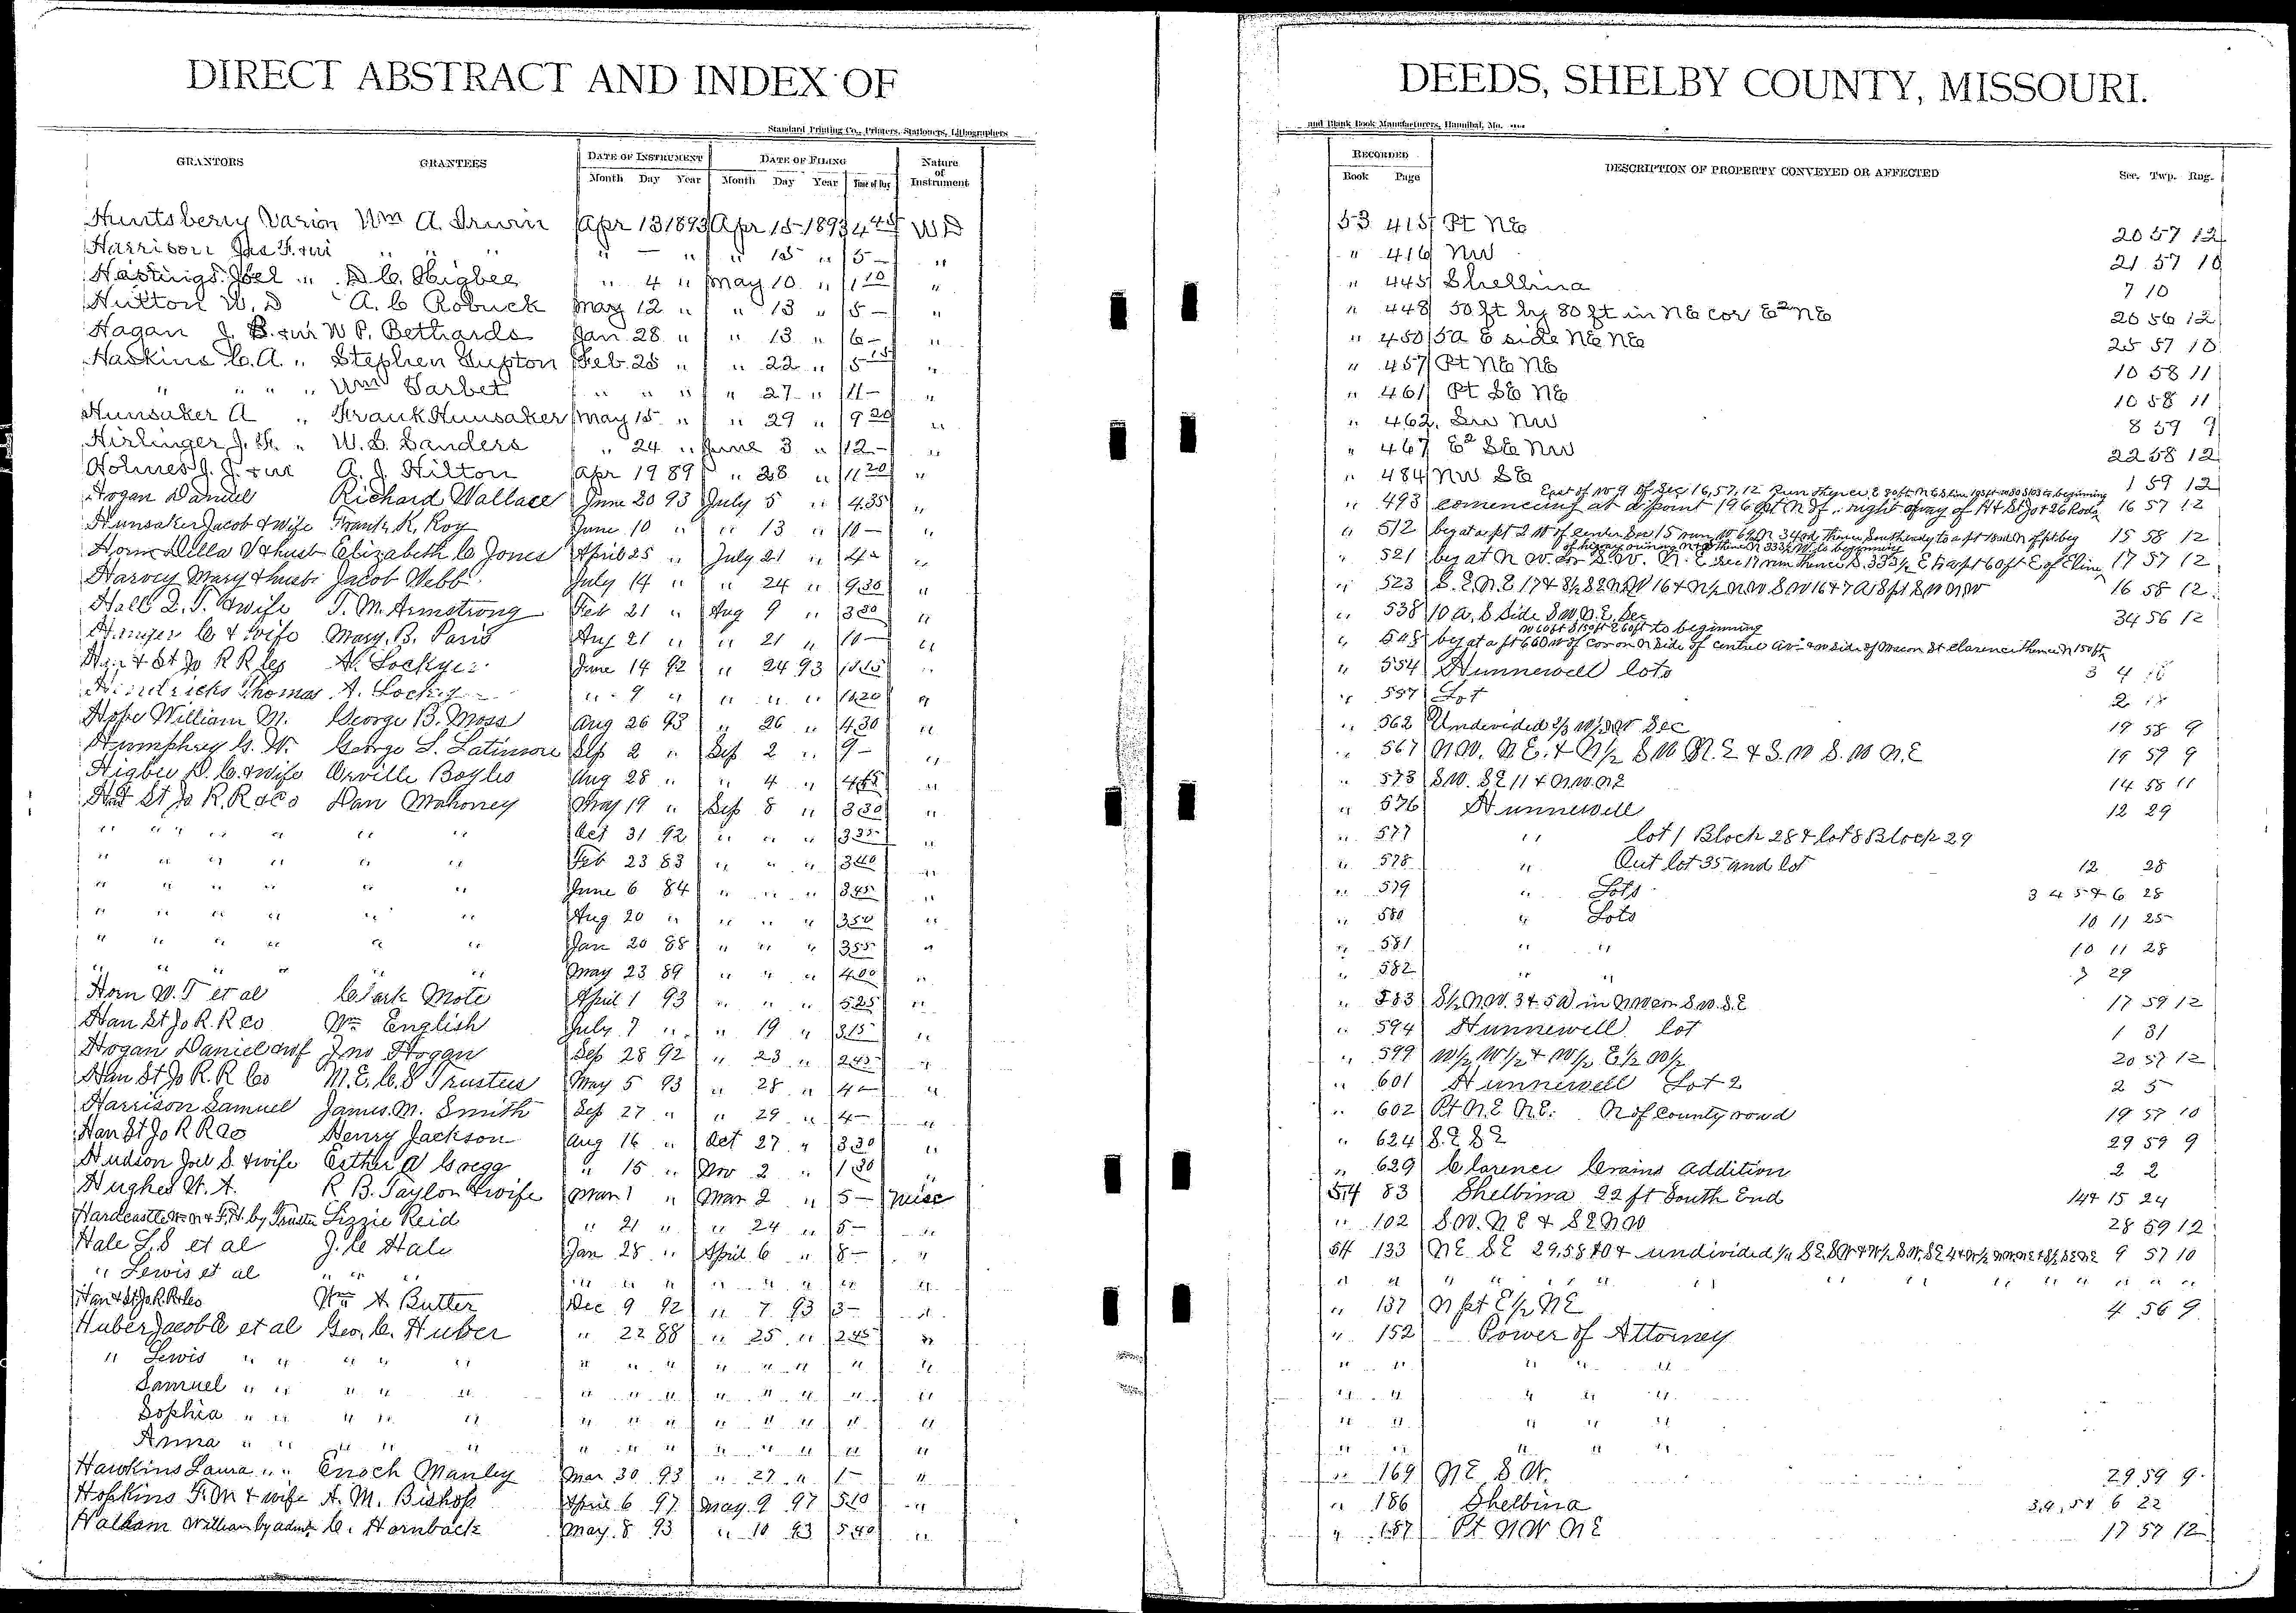 DIRECT ABSTRACT AND INDEX OF
DEEDS, SHELBY COUNTY, MISSOURI.
Standard Printing Co., Printers, Stationers, Lithographers
and Blank Book Manufacturers, Hannibal, Mo.
GRANTORS GRANTEES DATE OF INSTRUMENT DATE OF FILING Nature of Instrument RECORDED DESCRIPTION OF PROPERTY CONVEYED OR AFFECTED Sec. Twp. Rng.
Month Day Year Month Day Year Time of Day Book Page
Huntsberry Varion Wm A. Irwin Apr 13 1893 Apr 15 1893 4 45 WD 53 415 Pt NE 20 57 12
Harrison Jas F. + wi " " " " — " " 15 " 5 — " " 416 NW 21 57 10
Hastings Joel " D. C. Higbee " 4 " May 10 " 1 10 " " 445 Shelbina 7 10
Hutton W. D A. C Robuck May 12 " " 13 " 5 — " " 448 50 ft by 80 ft in NE cor E2 NE 20 56 12
Hagan J. B. + wi W P. Bethards Jan 28 " " 13 " 6 — " " 450 5a E side NE NE 25 57 10
Haskins C. A. " Stephen Gupton Feb 25 " " 22 " 5 15 " " 457 Pt NE NE 10 58 11
" " " " Wm Tarbet " " " " 27 " 11 — " " 461 Pt SE NE 10 58 11
Hunsaker A " Frank Hunsaker May 15 " " 29 " 9 20 " " 462 SW NW 8 59 9
Hirlinger J. F. " W. S. Sanders " 24 " June 3 " 12 — " " 467 E2 SE NW 22 58 12
Holmes J. J. + wi A. J. Hilton Apr 19 89 " 28 " 11 20 " " 484 NW SE 1 59 12
Hogan Daniel Richard Wallace June 20 93 July 5 " 4.35 " " 493 comencing at a point 16 57 12
Hunsaker Jacob & wife Frank K. Roy June 10 " " 13 " 10 — " " 512 15 58 12
Horn Della V & husb Elizabeth C Jones April 25 " July 21 " 4 — " 521 17 57 12
Harvey Mary & husb Jacob Webb July 14 " " 24 " 9 30 " " 523 16 58 12
Hall L. T. & wife T. M. Armstrong Feb 21 " Aug 9 " 3 30 " " 538 10 a. S Side SW. N.E. Sec 34 56 12
C & wife Mary. B. Paris Aug 21 " " 21 " 10 — " " 548
Han & St Jo R R Co A. Lockyer June 14 92 " 24 93 " " 554 Hunnewell lots 3 4
Hendricks Thomas A. " 9 " " " " 11 20 " " 557 Lot
Hope William M. George B. Moss Aug 26 93 " 26 " 4 30 " " 562 Undivided Sec 19 58 9
Humphrey G. W. George L. Latimore Sep 2 " Sep 2 " 9 — " " 567 N.W. N.E. & N 1/2 SW N.E & S.W S.W N.E 19 59 9
Higbee D. C. & wife Orville Boyles Aug 28 " " 4 " 4 45 " " 573 S.W. SE 11 & N.W. NE 14 58 11
Han St Jo R. R & Co Dan Mahoney May 19 " Sep 8 " 3 30 " " 576 Hunnewell 12 29
" " " " " " Oct 31 92 " " " 3 35 " " 577 " lot 1 Block 28 & lot 8 Block 29
" " " " " " Feb 23 83 " " " 3 40 " " 578 " Out lot 35 and lot 12 28
" " " " " " June 6 84 " " " 3 45 " " 579 " Lots 3 4 5 & 6 28
" " " " " " Aug 20 " " " " 3 50 " " 580 " Lots 10 11 25
" " " " " " Jan 20 88 " " " 3 55 " " 581 " " 10 11 28
" " " " " " May 23 89 " " " 4 00 " " 582 " " 29
Horn W. T et al Clark Mote April 1 93 " " " 5 25 " " 583 17 59 12
Han St Jo R. R Co Wm English July 7 " " 19 " 3 15 " " 594 Hunnewell lot 1 31
Hogan Daniel Jno Hogan Sep 28 92 " 23 " 2 45 " " 599 W 1/2 W 1/2 & W 1/2 E 1/2 W 1/2 20 57 12
Han St Jo R. R Co M. E. C. S Trustees May 5 93 " 28 " 4 — " " 601 Hunnewell Lot 2 2 5
Harrison Samuel James. M. Smith Sep 27 " " 29 " 4 — " " 602 Pt N.E N.E. N of county road 19 57 10
Han St Jo R R Co Henry Jackson Aug 16 " Oct 27 " 3 30 " " 624 S.E SE 29 59 9
Hudson Joel S. & wife Esther A Gregg " 15 " Nov 2 " 1 30 " " 629 Clarence Crains Addition 2 2
Hughes W. A. R B. Taylor & wife Mar 1 " Mar 2 " 5 — Misc 54 83 Shelbina 22 ft South End 14 & 15 24
Hardcastle by Trustee Lizzie Reid " 21 " " 24 " 5 — " " 102 S.W. N E & S E N W 28 59 12
Hale L. S et al J. C Hale Jan 28 " April 6 " 8 — " 54 133 NE SE 9 57 10
" Lewis et al " " " " " " " " " " " " " " " "
Han & St. Jo. R. R. Co Wm A Butler Dec 9 92 " 7 93 3 — " " 137 N pt E 1/2 NE 4 56 9
Huber Jacob et al Geo. C. Huber " 22 88 " 25 " 2 45 " " 152 Power of Attorney
" Lewis " " " " " " " " " " " " " " " " " "
Samuel " " " " " " " " " " " " " " " " "
Sophia " " " " " " " " " " " " " " " " "
Anna " " " " " " " " " " " " " " " " "
Hawkins Laura " " Enoch Manley Mar 30 93 " 27 " 1 — " " 169 NE S.W. 29 59 9
Hopkins F. M & wife A. M. Bishop April 6 97 May 9 97 5 10 " " 186 Shelbina 3, 4, 5 & 6 22
William by admr C. Hornback May 8 93 " 10 93 5 40 " " 187 Pt NW NE 17 57 12